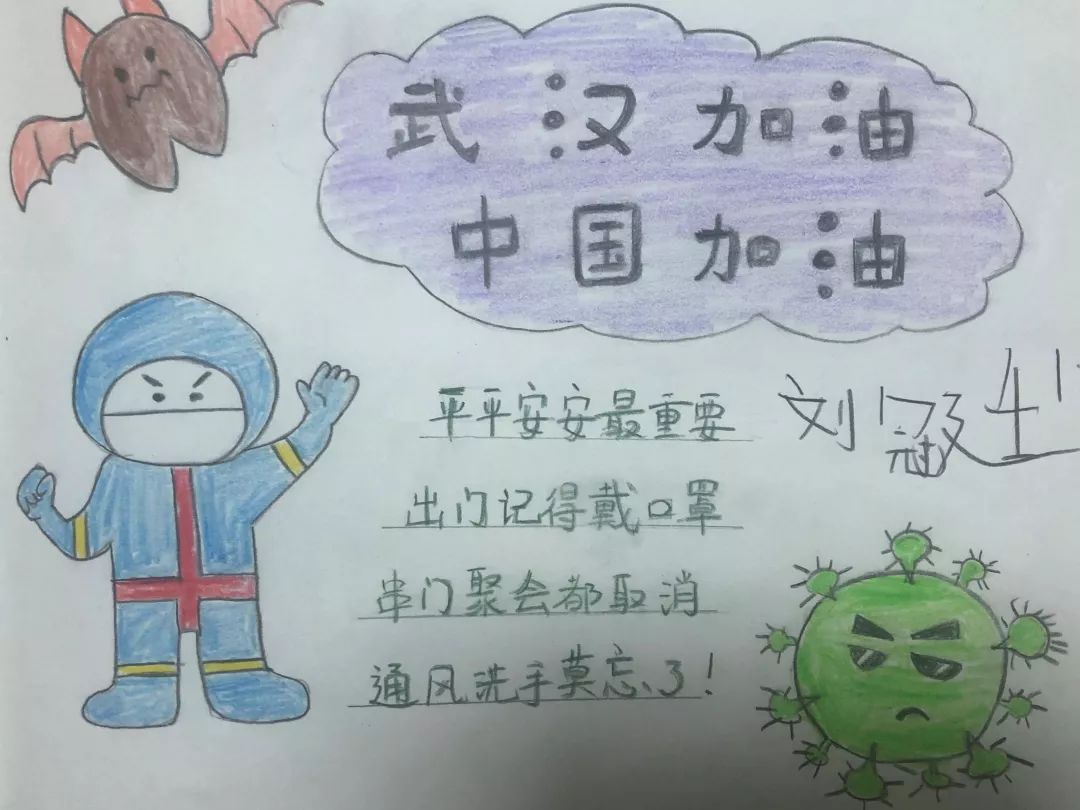 武汉加油
中国加油
平平安安最重要
出门记得戴口罩
串门聚会都取消
通风洗手莫忘了！
刘